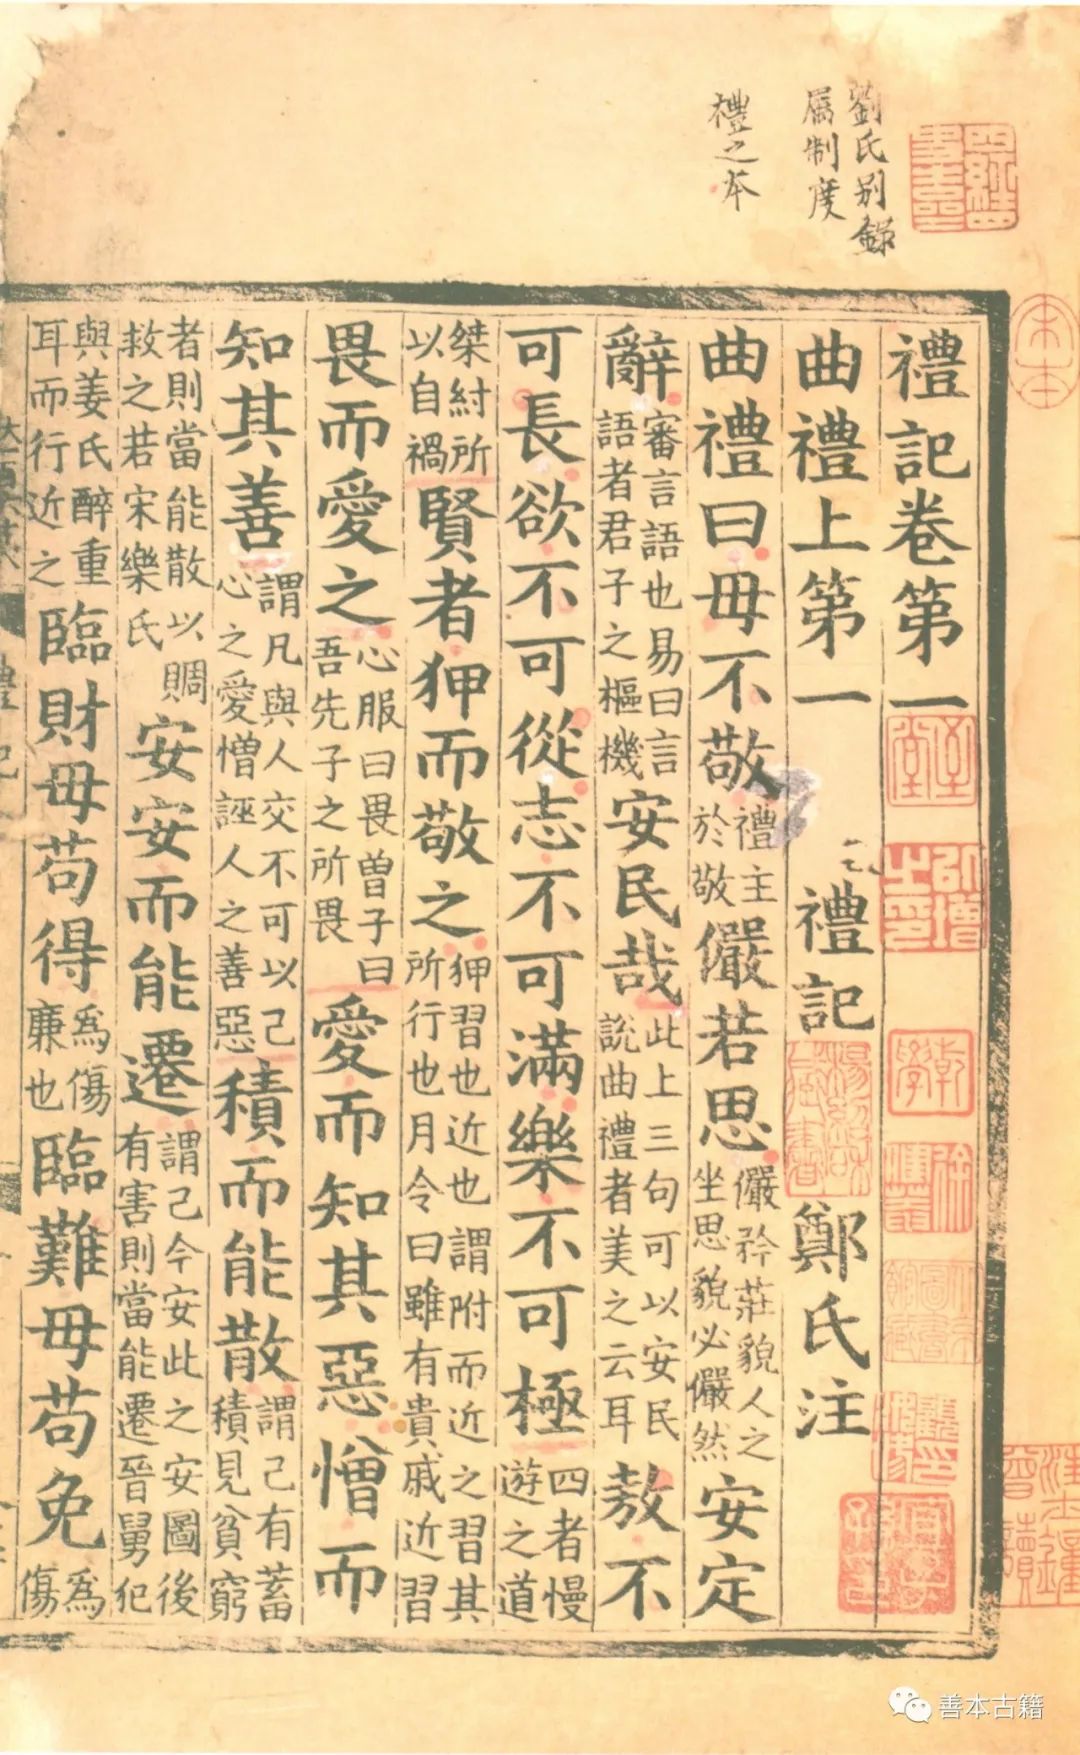 劉氏别錄
屬制度
禮之本
禮記卷第一
曲禮上第一 禮記 鄭氏注
曲禮曰毋不敬禮主於敬儼若思儼矜莊貌人之坐思貌必儼然安定
辭審言語也易曰言語者君子之樞機安民哉此上三句可以安民說曲禮者美之云耳敖不
可長欲不可從志不可滿樂不可極四者慢遊之道
桀紂所以自禍賢者狎而敬之狎習也近也謂附而近之習其所行也月令曰雖有貴戚近習
畏而愛之心服曰畏曾子曰吾先子之所畏愛而知其惡憎而
知其善謂凡與人交不可以己心之愛憎誣人之善惡積而能散謂己有蓄積見貧窮
者則當能散以賙救之若宋樂氏安安而能遷謂己今安此之安圖後有害則當能遷晉舅犯
與姜氏醉重耳而行近之臨財毋苟得為傷廉也臨難毋苟免為傷
善本古籍